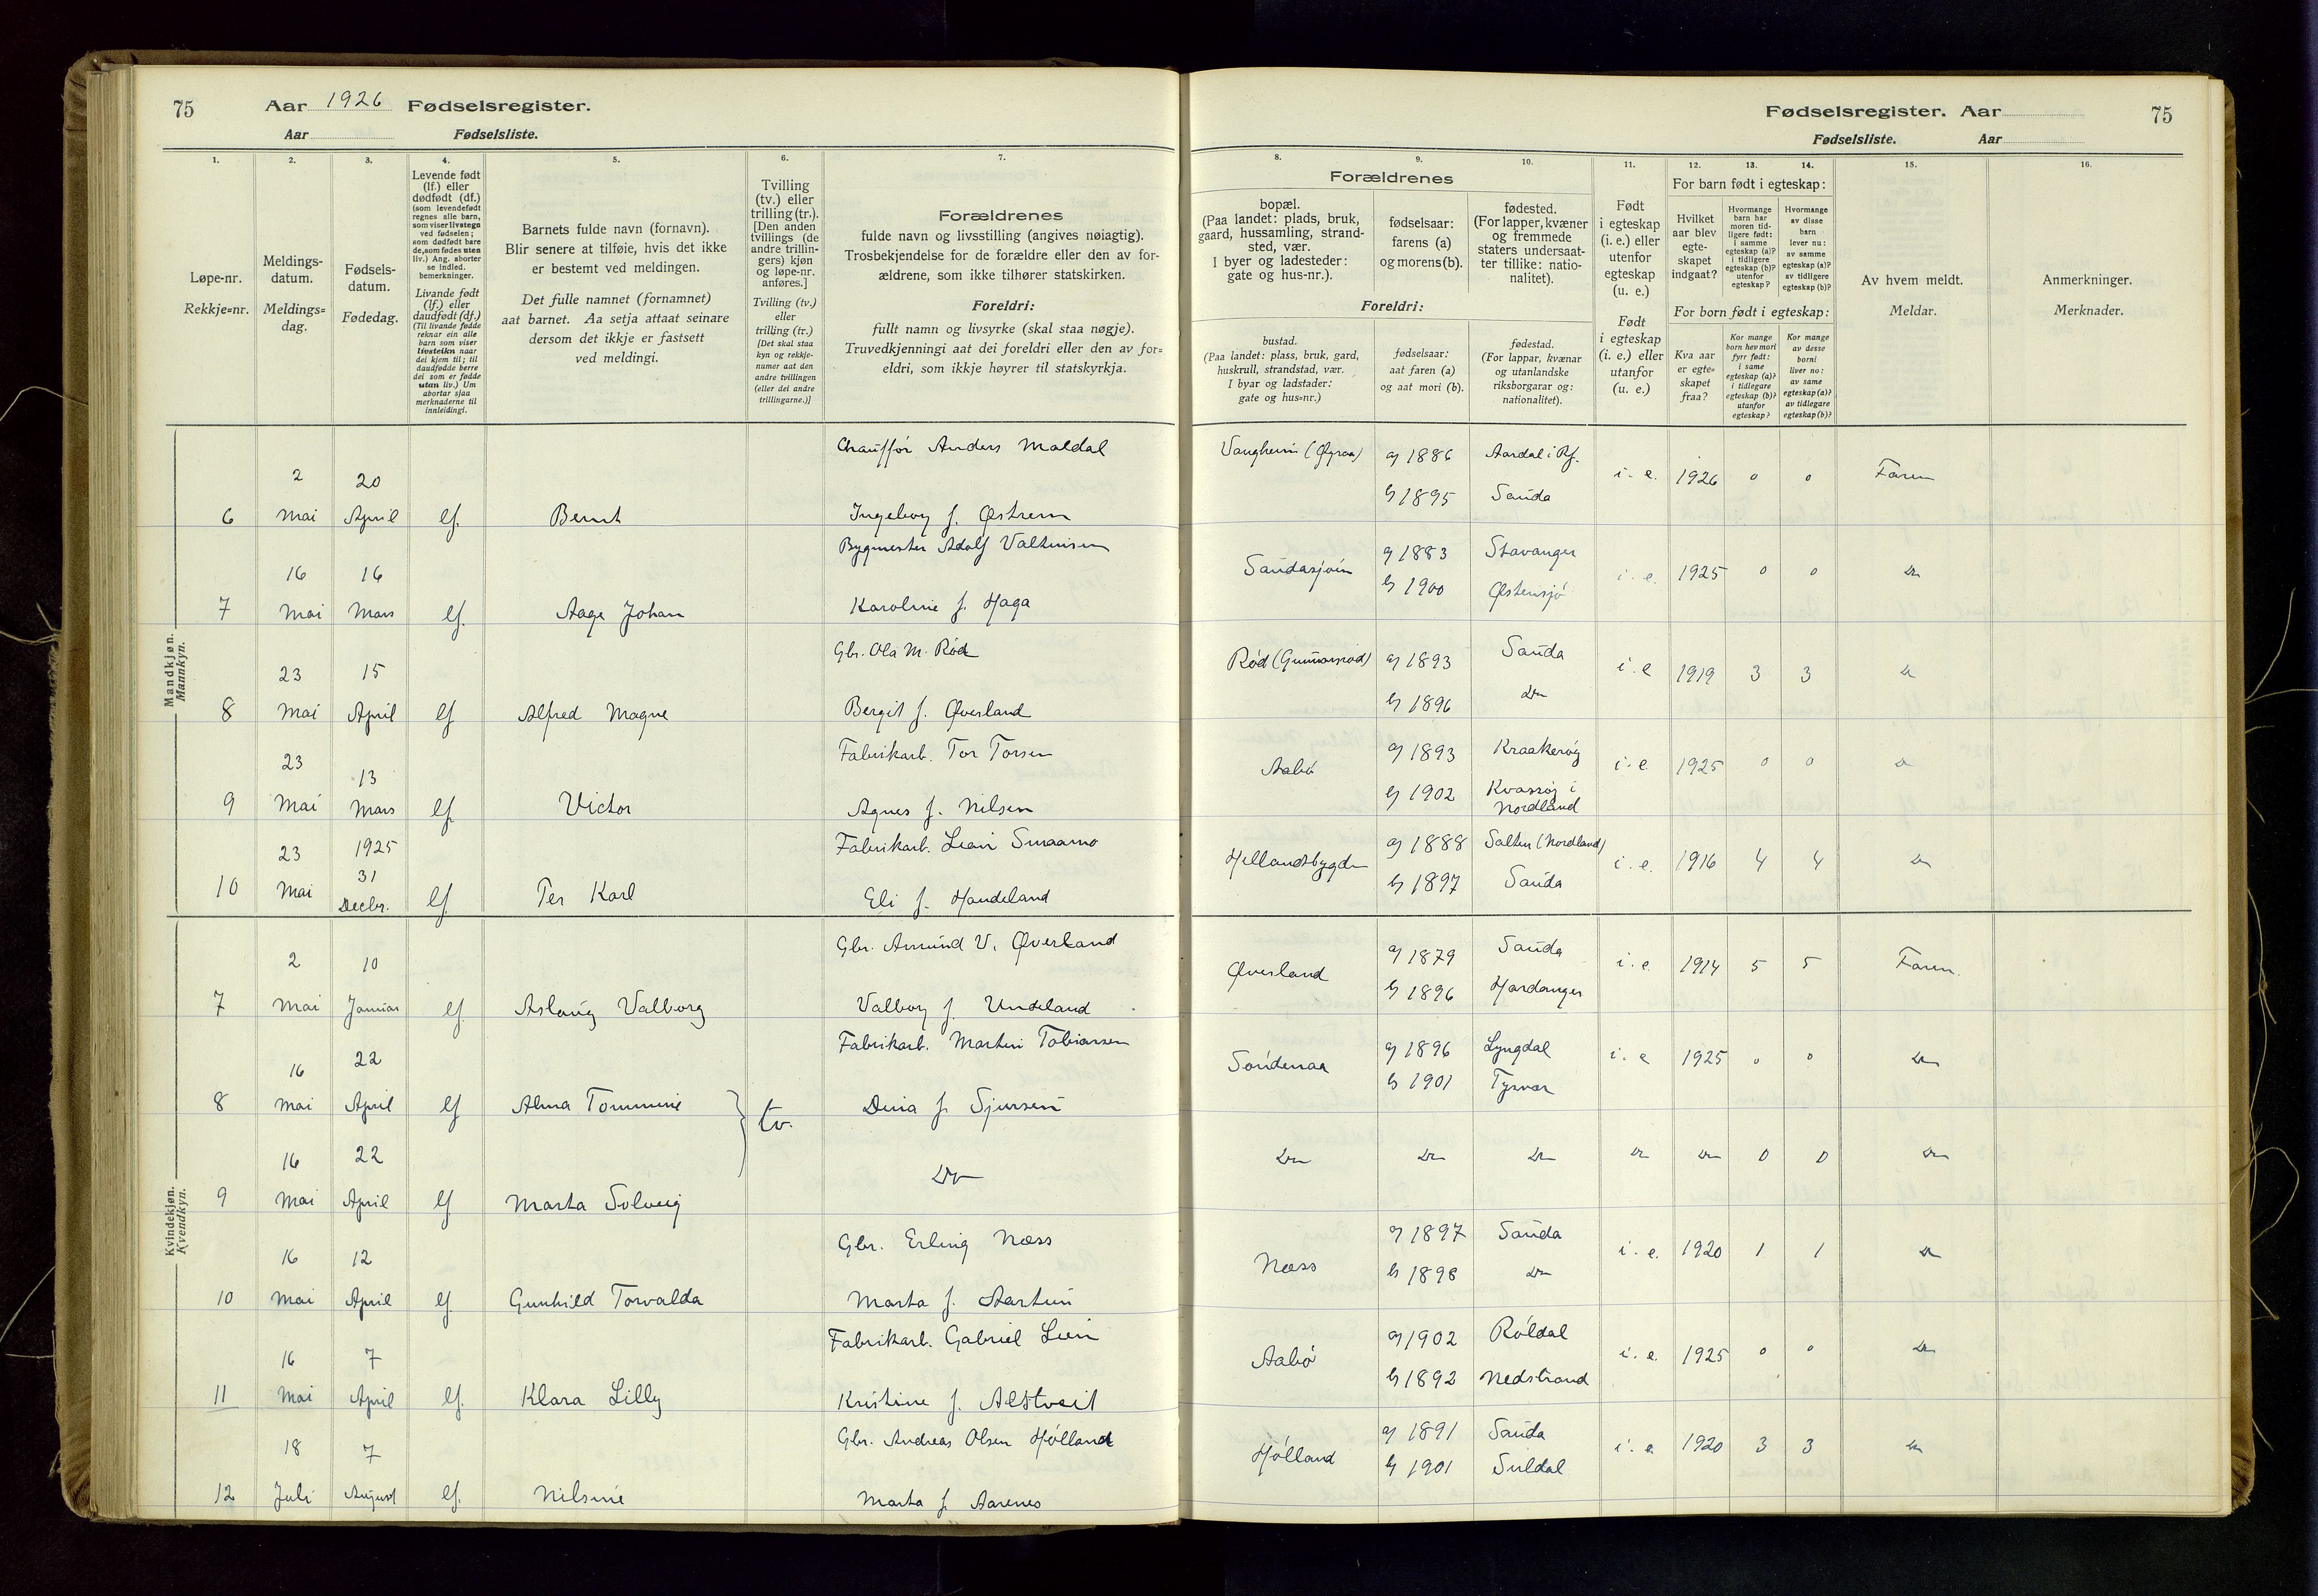 75 Aar 1926 Fødselsregister.
Aar Fødselsliste.
Fødselsregister. Aar 75
Fødselsliste. Aar
1. 2. 3. 4. 5. 6. 7.
Løpe-nr.
Rekkje=nr.
Meldings-
datum.
Meldings=
dag.
Fødsels-
datum.
Fødedag.
Levende født
(lf.) eller
dødfødt (df.)
(som levendefødt
regnes alle barn,
som viser livstegn
ved fødselen;
som dødfødt bare
de, som fødes uten
liv.) Ang. aborter
se indled.
bemerkninger.
Livande født
(lf.) eller
daudfødt (df.)
(Til livande fødde
reknar ein alle
barn som viser
livsteikn naar
dei kjem til; til
daudfødde berre
dei som er fødde
utan liv.) Um
abortar sjaa
merknaderne til
innleidingi.
Barnets fulde navn (fornavn).
Blir senere at tilføie, hvis det ikke
er bestemt ved meldingen.
Det fulle namnet (fornamnet)
aat barnet. Aa setja attaat seinare
dersom det ikkje er fastsett
ved meldingi.
Tvilling
(tv.) eller
trilling (tr.).
[Den anden
tvillings (de
andre trillin-
gers) kjøn
og løpe-nr.
anføres.]
Tvilling (tv.)
eller
trilling (tr.)
[Det skal staa
kyn og rekkje-
numer aat den
andre tvillingen
(eller dei andre
trillingarne.)]
Forældrenes
fulde navn og livsstilling (angives nøiagtig).
Trosbekjendelse for de forældre eller den av for-
ældrene, som ikke tilhører statskirken.
Foreldri:
fullt namn og livsyrke (skal staa nøgje).
Truvedkjenningi aat dei foreldri eller den av for=
eldri, som ikkje høyrer til statskyrkja.
8. 9. 10. 11. 12. 13. 14. 15. 16.
Forældrenes
bopæl.
(Paa landet: plads, bruk,
gaard, hussamling, strand-
sted, vær.
I byer og ladesteder:
gate og hus-nr.).
fødselsaar:
farens (a)
og morens (b).
fødested.
(For lapper, kvæner
og fremmede
staters undersaat-
ter tillike: natio-
nalitet).
Foreldri:
bustad.
(Paa landet: plass, bruk, gard,
huskrull, strandstad, vær.
I byar og ladstader:
gate og hus=nr.)
fødselsaar:
aat faren (a)
og aat mori (b).
fødestad.
(For lappar, kvænar
og utanlandske
riksborgarar og:
nationalitet).
Født
i egteskap
(i. e.) eller
utenfor
egteskap
(u. e.)
Født
i egteskap
(i. e.) eller
utanfor
(u. e.)
For barn født i egteskap:
Hvilket
aar blev
egte-
skapet
indgaat?
Hvormange
barn har
moren tid-
ligere født:
i samme
egteskap (a)?
i tidligere
egteskap (b)?
utenfor
egteskap?
Hvormange
av disse
barn
lever nu:
av samme
egteskap (a)?
av tidligere
egteskap (b)?
For born født i egteskap:
Kva aar
er egte=
skapet
fraa?
Kor mange
born hev mori
fyrr født:
i same
egteskap (a)?
i tidlegare
egteskap (b)?
utanfor
egteskap?
Kor mange
av desse
borni
liver no:
av same
egteskap (a)?
av tidlegare
egteskap (b)?
Av hvem meldt.
Meldar.
Anmerkninger.
Merknader.
Mandkjøn.
Mannkyn.
Chauffør Anders Maldal Vangheim a) 1886 Aardal i Rf. i. e. 1926 0 0 Faren
2 20
b) 1895 Sauda
6 Mai April lf. Bernt Ingeborg f. Østrem
Bygmester Adolf Valtinsen Saudasjøen a) 1883 Stavanger i. e. 1925 0 0 Do
16 16
b) 1900 Ølstensjø
7 Mai Mars lf. Aage Johan Karoline f. Haga
Gbr. Ola M. Rød Rød (Gunnarsrød) a) 1893 Sauda i. e 1919 3 3 Do
23 15
b) 1896 Do
8 Mai April lf Alfred Magne Bergit f. Øverland
Fabrikarb. Tor Torsen Aabø a) 1893 Kraakerøy i. e 1925 0 0 Do
23 13
b) 1902 Kvassøy i
Nordland
9 Mai Mars lf. Victor Agnes f. Nilsen
Fabrikarb. Leon Smaamo Hellandsbygden a) 1888 Salten (Nordland) i. e. 1916 4 4 Do
23 1925
31
b) 1897 Sauda
10 Mai Decbr. lf. Per Karl Eli f. Handeland
Kvindekjøn.
Kvendkyn.
Gbr. Amund V. Øverland Øverland a) 1879 Sauda i. e. 1914 5 5 Faren.
2 10
b) 1896 Hardanger
7 Mai Januar lf. Aslaug Valborg Valborg f. Undeland
Fabrikarb. Martin Tobiassen Søndenaa a) 1896 Lyngdal i. e 1925 0 0 Do
16 22
b) 1901 Tysvær
8 Mai April lf Alma Tommine } tv. Dina f. Sjursen
16 22 Do Do Do Do Do Do 0 0 Do
9 Mai April lf Marta Solveig
Gbr. Erling Næss Næss a) 1897 Sauda i. e. 1920 1 1 Do
16 12
b) 1898 Do
10 Mai April lf Gunhild Torvalda Marta f. Aartun
Fabrikarb. Gabriel Lien Aabø a) 1902 Røldal i. e. 1925 0 0 Do
16 7
b) 1892 Nedstrand
11 Mai April lf. Klara Lilly Kristine f. Alstveit
Gbr. Andreas Olsen Hølland Hølland a) 1891 Sauda i. e 1920 3 3 Do
18 7
b) 1901 Suldal
12 Juli August lf. Nilsine Marta f. Aarenes